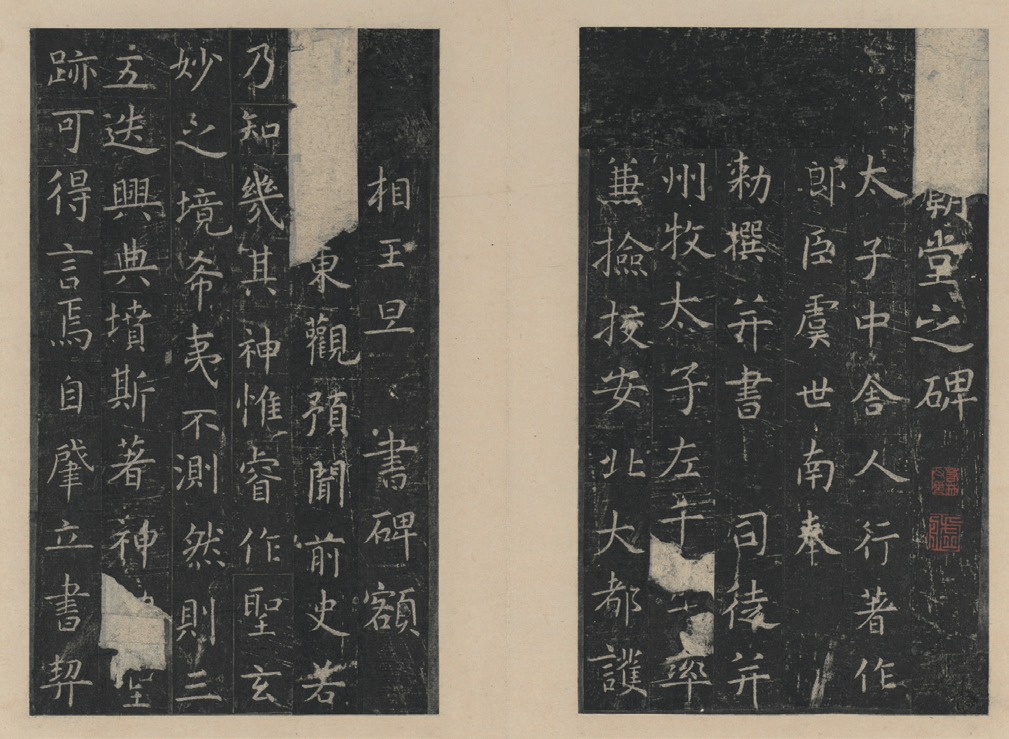 廟堂之碑
太子中舍人行著作
郎臣虞世南奉
勑撰并書 司徒并
州牧太子左千牛率
兼撿挍安北大都護
相王旦書碑額
東觀預聞前史若
乃知幾其神惟睿作聖玄
妙之境希夷不測然則三
五迭興典墳斯著神聖
跡可得言焉自肇立書契